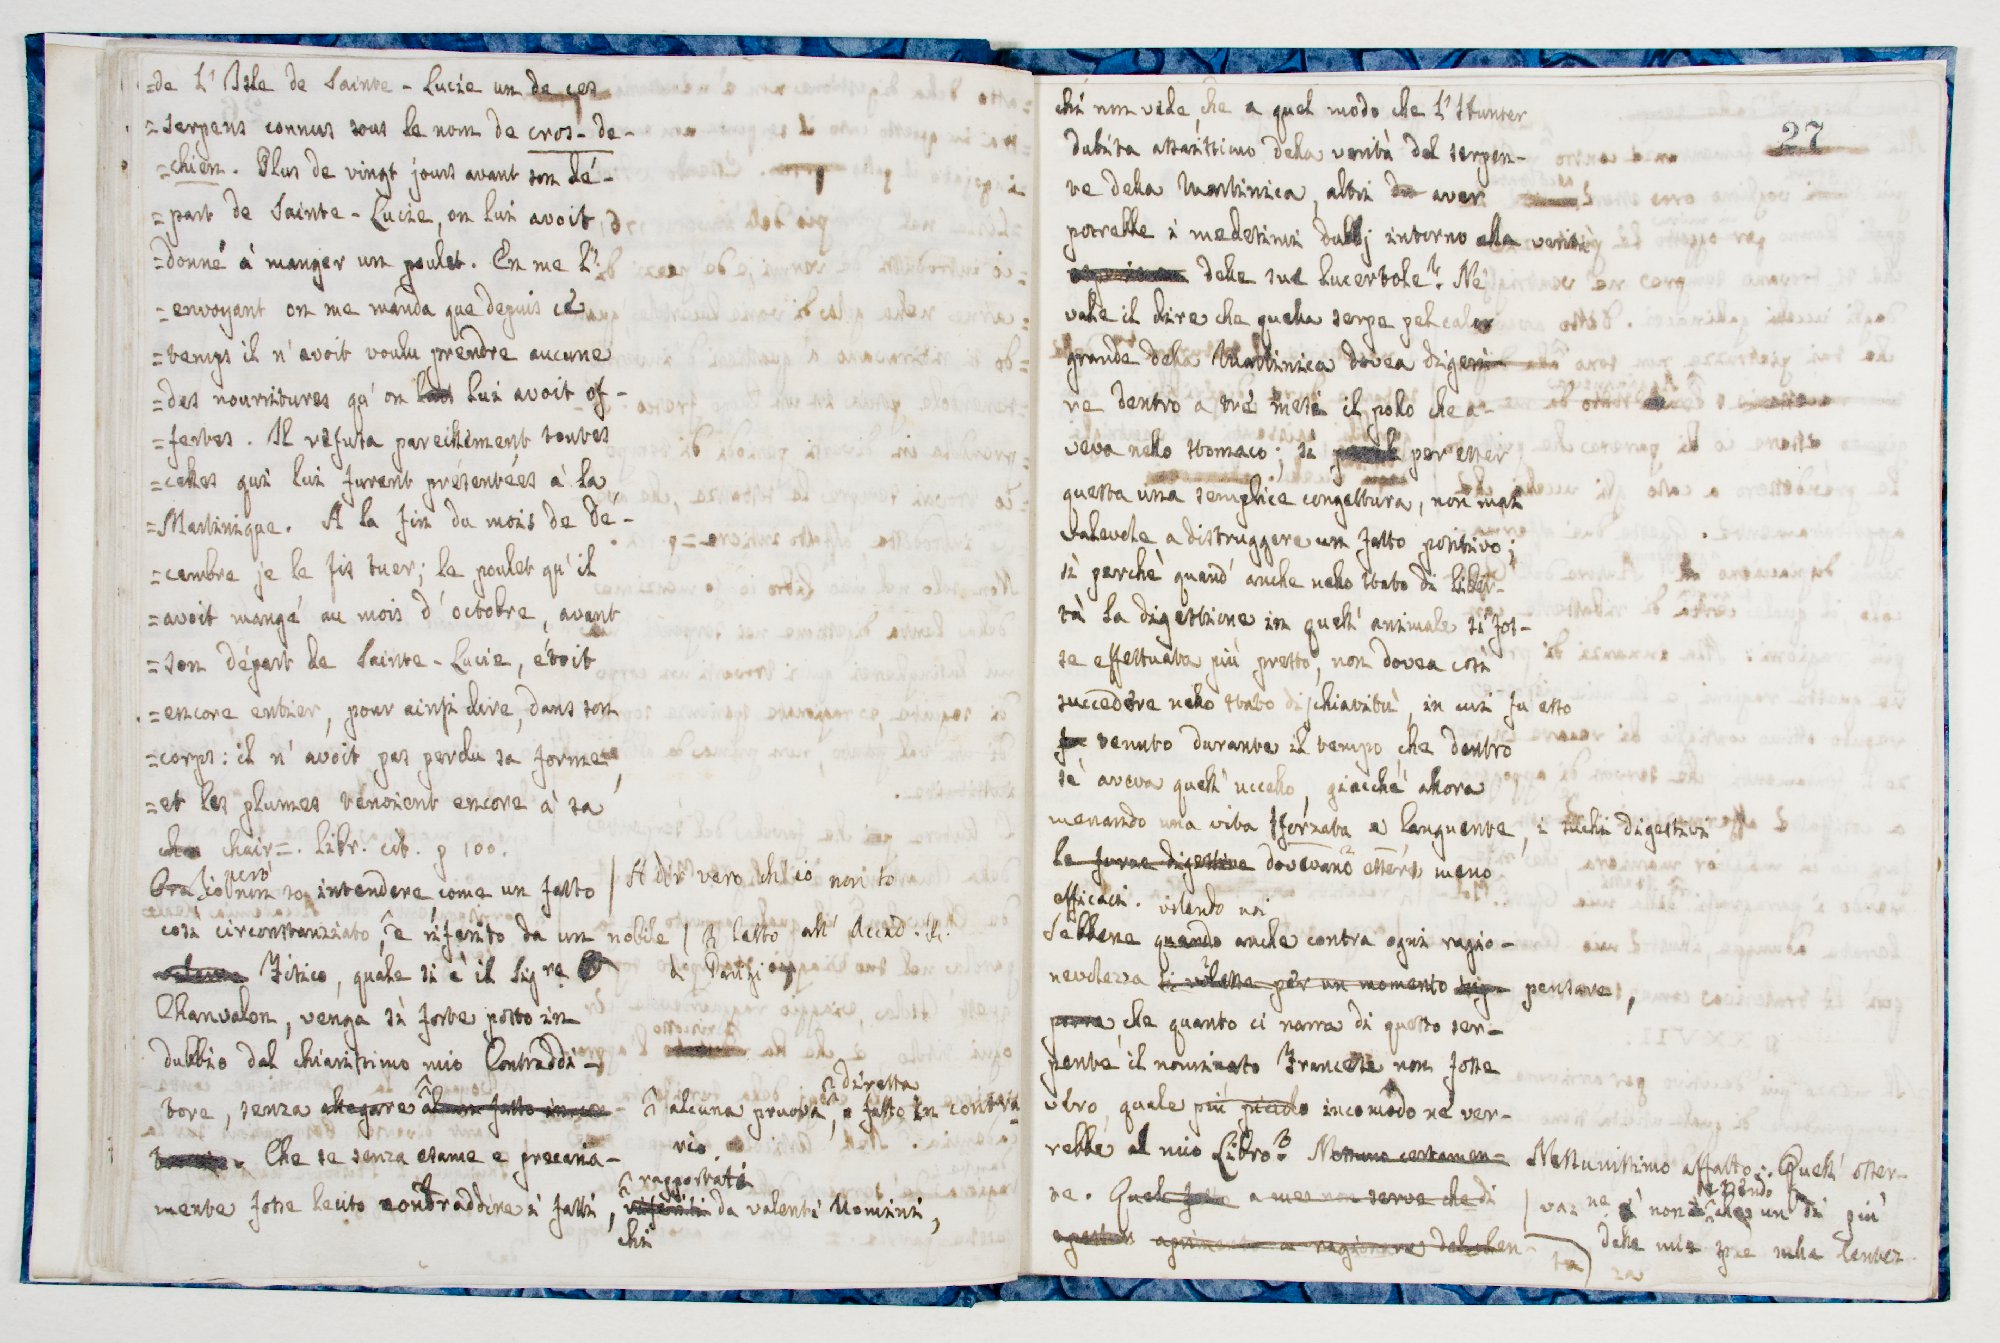 =de l' Isle de Sainte-Lucie un de ces
=serpens connus sous le nom de cros-de-
=chien. Plus de vingt jours avant son dé-
=part de Sainte-Lucie, on lui avoit
=donné à manger un poulet. En me l'
=envoyant on me manda que depuis ce
=temps il n'avoit voulu prendre aucune
=des nourritures qu'on lui avoit of-
=fertes. Il refusa pareillement toutes
=celles qui lui furent présentées à la
=Martinique. A la fin du mois de De-
=cembre je le fis tuer; le poulet qu'il
=avoit mangé au mois d'octobre, avant
=son départ de Sainte-Lucie, étoit
=encore entier, pour ainsi dire, dans son
=corps: il n'avoit pas perdu sa forme,
=et les plumes tenoient encore à sa
chair=. libr. cit. p 100.
Ora io però non so intendere come un fatto / A dir vero ch' io non so
così circonstanziato, e riferito da un nobile / si letto all' Accad. R.
Fisico, quale si è il Sig.re di Parigi
Chanvalon, venga sì forte posto in
dubbio dal chiarissimo mio Contraddi-
tore, senza allegare alcun fatto in co- alcuna pruova diretta, o fatto in contra-
rio. Che se senza esame e precaria-
mente fosse lecito contraddire i fatti, riferiti rapportati da valenti Uomini,
chi
27
chi non vede, che a quel modo che l' Hunter
dubita assaissimo della verità del serpen-
te della Martinica, altri aver
potrebbe i medesimi dubbj intorno alla verità
delle sue lucertole? Nè
vale il dire che quella serpe pel calor
grande della Martinica dovea digeri-
re dentro a tre mesi il pollo che a-
veva nello stomaco; sì per esser
questa una semplice congettura, non mai
valevole a distruggere un fatto positivo;
sì perchè quand' anche nello stato di liber-
tà la digestione in quell' animale si fos-
se effettuata più presto, non dovea così
succedere nello stato di schiavitù, in cui fu esso
fu tenuto durante il tempo, che dentro
sè aveva quell' uccello, giacchè allora
menando una vita sforzata e languente, i succhi digestivi
le forze digestive dovevano essere meno
efficaci. volendo noi
Sebbene quando anche contra ogni ragio-
nevolezza si volesse per un momento pensare,
che quanto ci narra di questo ser-
pente il nominato Francese non fosse
vero, quale più piccolo incomodo ne ver-
rebbe al mio Libro? Nessuno certamen- Nessunissimo affatto. Quell' osser-
te. Quel fatto a me non serve che di / vazione non essendo che un di più
a ragionare della len- delle mie prove nella lentez-
ta za